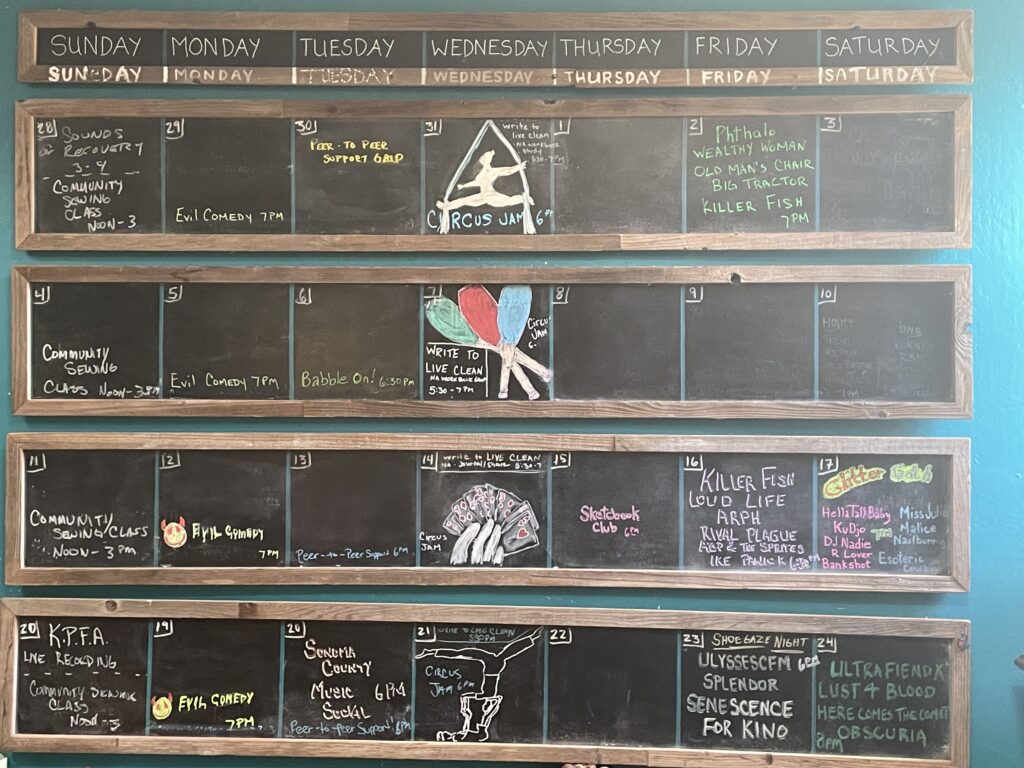 SUNDAY MONDAY TUESDAY WEDNESDAY THURSDAY FRIDAY SATURDAY
SUNDAY MONDAY TUESDAY WEDNESDAY THURSDAY FRIDAY SATURDAY
28
SOUNDS
RECOVERY
COMMUNITY
SEWING
CLASS
NOON-3
29
Evil COMEDY 7PM
30
PEER-TO PEER
SUPPORT
31
Write to
live clean
NA workbook
study
5:30-7PM
CIRCUS JAM 6PM
1
2
Phthalo
WEALTHY WOMAN
OLD MAN'S CHAIR
BIG TRACTOR
KILLER FISH
7PM
3
4
COMMUNITY
SEWING
CLASS NOON-3PM
5
Evil COMEDY 7PM
6
Babble On! 6:30PM
7
CIRCUS
JAM
6-
WRITE TO
LIVE CLEAN
NA WORKBOOK
5:30-7PM
8
9
10
HOUSE
DNB
11
COMMUNITY
SEWING CLASS
NOON-3PM
12
EVIL COMEDY
7PM
13
Peer-to-Peer Support 6pm
14
Write to LIVE CLEAN
NA-Journal/Share 5:30-7
CIRCUS
JAM
15
Sketchbook
Club 6PM
16
KILLER FISH
LOUD LIFE
ARPH
RIVAL PLAGUE
6:30PM
17
Glitter
HellaTallBaby
KuDjo
7PM
DJ Nadie
R Lover
Bankshot
Malice
Esoteric
20
K.P.F.A.
LIVE RECORDING
Community SEWING
CLASS
NOON-3
19
EVIL COMEDY
7PM
20
SONOMA
COUNTY
MUSIC 6PM
SOCIAL
Peer-to-peer Support 6PM
21
WRITE TO LIVE CLEAN
530PM
CIRCUS
JAM 6PM
22
23
SHOEGAZE NIGHT
ULYSSESCFM 6PM
SPLENDOR
SENESCENCE
FOR KINO
24
ULTRAFIENDX
LUST 4 BLOOD
HERE COMES THE COMET
OBSCURIA
8PM